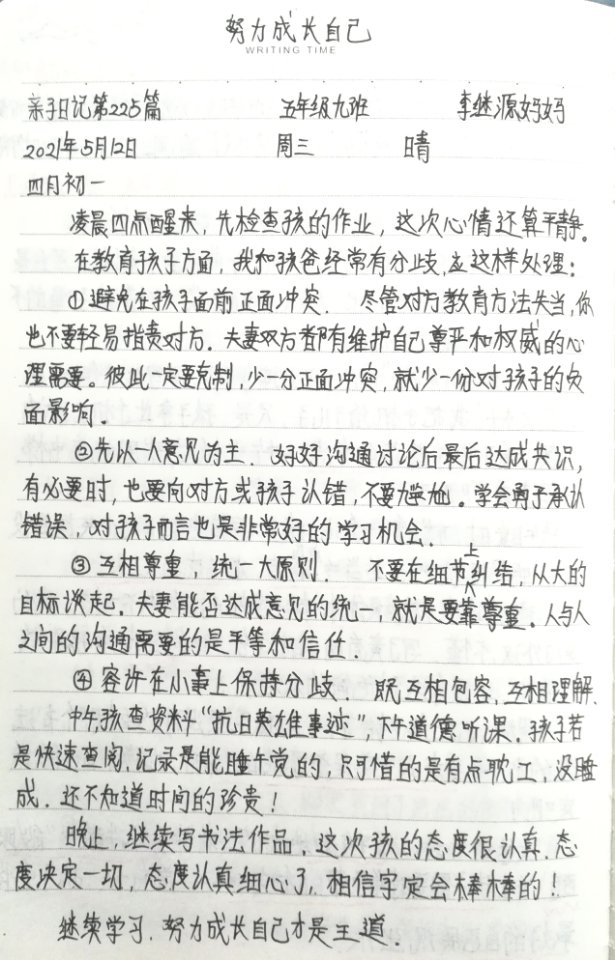 努力成长自己
WRITING TIME
亲子日记第225篇 五年级九班 李继源妈妈
2021年5月12日 周三 晴
四月初一
凌晨四点醒来,先检查孩的作业,这次心情还算平静。
在教育孩子方面,我和孩爸经常有分歧,应这样处理:
①避免在孩子面前正面冲突. 尽管对方教育方法失当,你
也不要轻易指责对方.夫妻双方都有维护自己尊严和权威的心
理需要。彼此一定要克制,少一分正面冲突,就少一份对孩子的负
面影响.
②先以一人意见为主. 好好沟通讨论后最后达成共识,
有必要时,也要向对方或孩子认错,不要尴尬。学会勇于承认
错误,对孩子而言也是非常好的学习机会.
③互相尊重,统一大原则. 不要在细节上纠结,从大的
目标谈起.夫妻能否达成意见的统一,就是要靠尊重。人与人
之间的沟通需要的是平等和信任.
④容许在小事上保持分歧. 既互相包容,互相理解.
中午,孩查资料“抗日英雄事迹”,下午道德听课.孩子若
是快速查阅.记录是能睡午觉的,只可惜的是有点耽工,没睡
成.还不知道时间的珍贵!
晚上,继续写书法作品.这次孩的态度很认真.态
度决定一切,态度认真细心了,相信字定会棒棒的!
继续学习.努力成长自己才是王道.